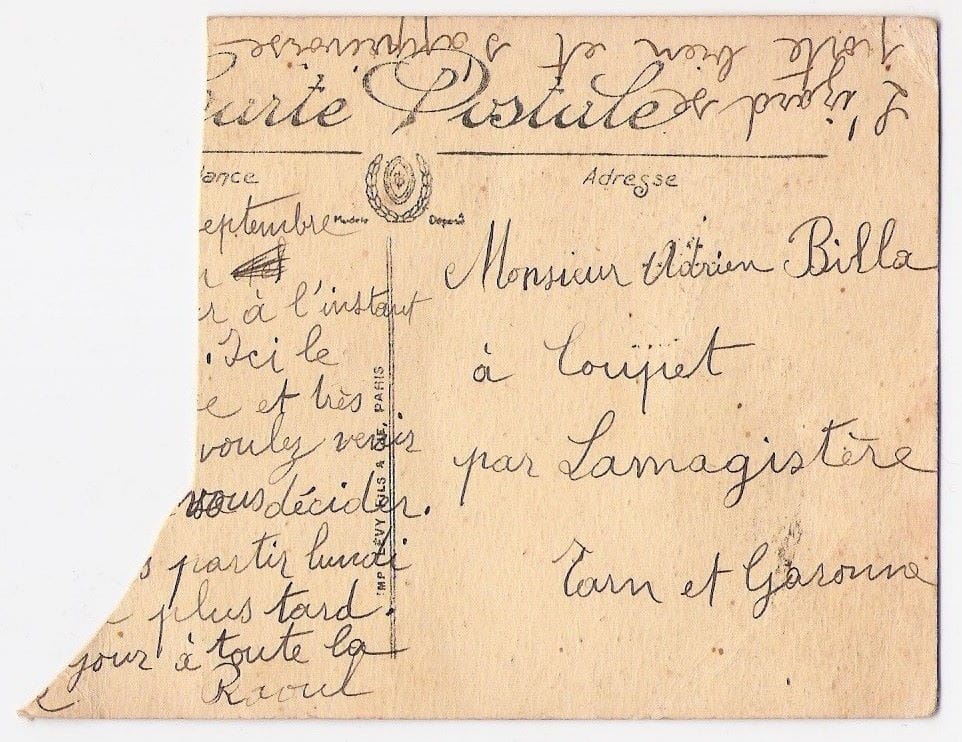 L'izard se
porte bien et s'apprivoise
Carte Postale
ance
Adresse
Modèle Déposé
eptembre
r
r à l'instant
. Ici le
e et très
voulez venir
vous décider.
s partir lundi
plus tard.
jour à toute la
e Raoul
IMP. LÉVY FILS & CIE, PARIS
Monsieur Adrien Billa
à Coupet
par Lamagistère
Tarn et Garonne